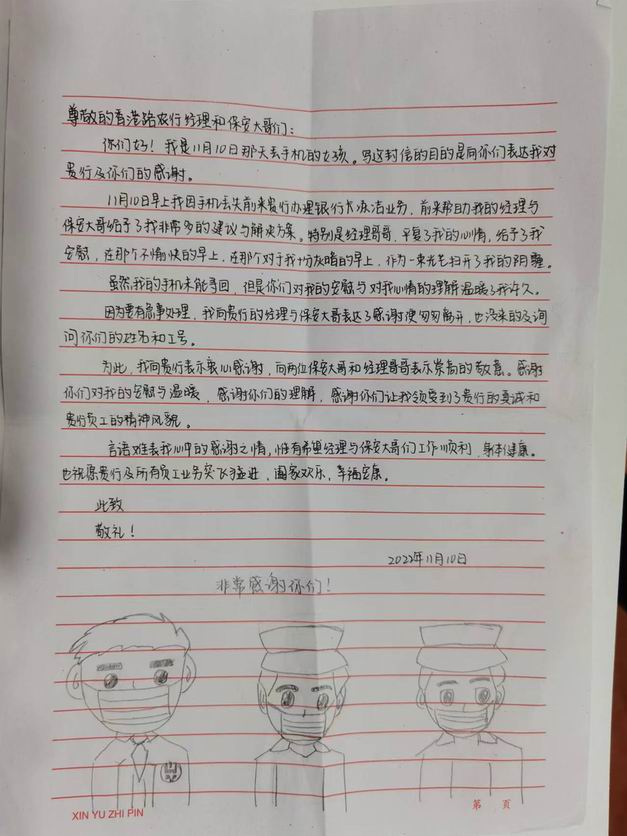 尊敬的香港路农行经理和保安大哥们：
你们好！我是11月10日那天丢手机的女孩。写这封信的目的是向你们表达我对
贵行及你们的感谢。
11月10日早上我因手机丢失前来贵行办理银行卡冻结业务，前来帮助我的经理与
保安大哥给予了我非常多的建议与解决方案。特别是经理哥哥，平复了我的心情，给予了我
安慰，在那个不愉快的早上，在那个对于我十分灰暗的早上，作为一束光芒扫开了我的阴霾。
虽然我的手机未能寻回，但是你们对我的安慰与对我心情的理解温暖了我许久。
因为要有急事处理，我向贵行的经理与保安大哥表达了感谢便匆匆离开，也没来的及询
问你们的姓名和工号。
为此，我向贵行表示衷心感谢，向两位保安大哥和经理哥哥表示崇高的敬意。感谢
你们对我的安慰与温暖，感谢你们的理解，感谢你们让我领略到了贵行的真诚和
贵行员工的精神风貌。
言语难表我心中的感谢之情，惟有希望经理与保安大哥们工作顺利，身体健康。
也祝愿贵行及所有员工业务突飞猛进，阖家欢乐，幸福安康。
此致
敬礼！
2022年11月10日
非常感谢你们！
XIN YU ZHI PIN
第 页